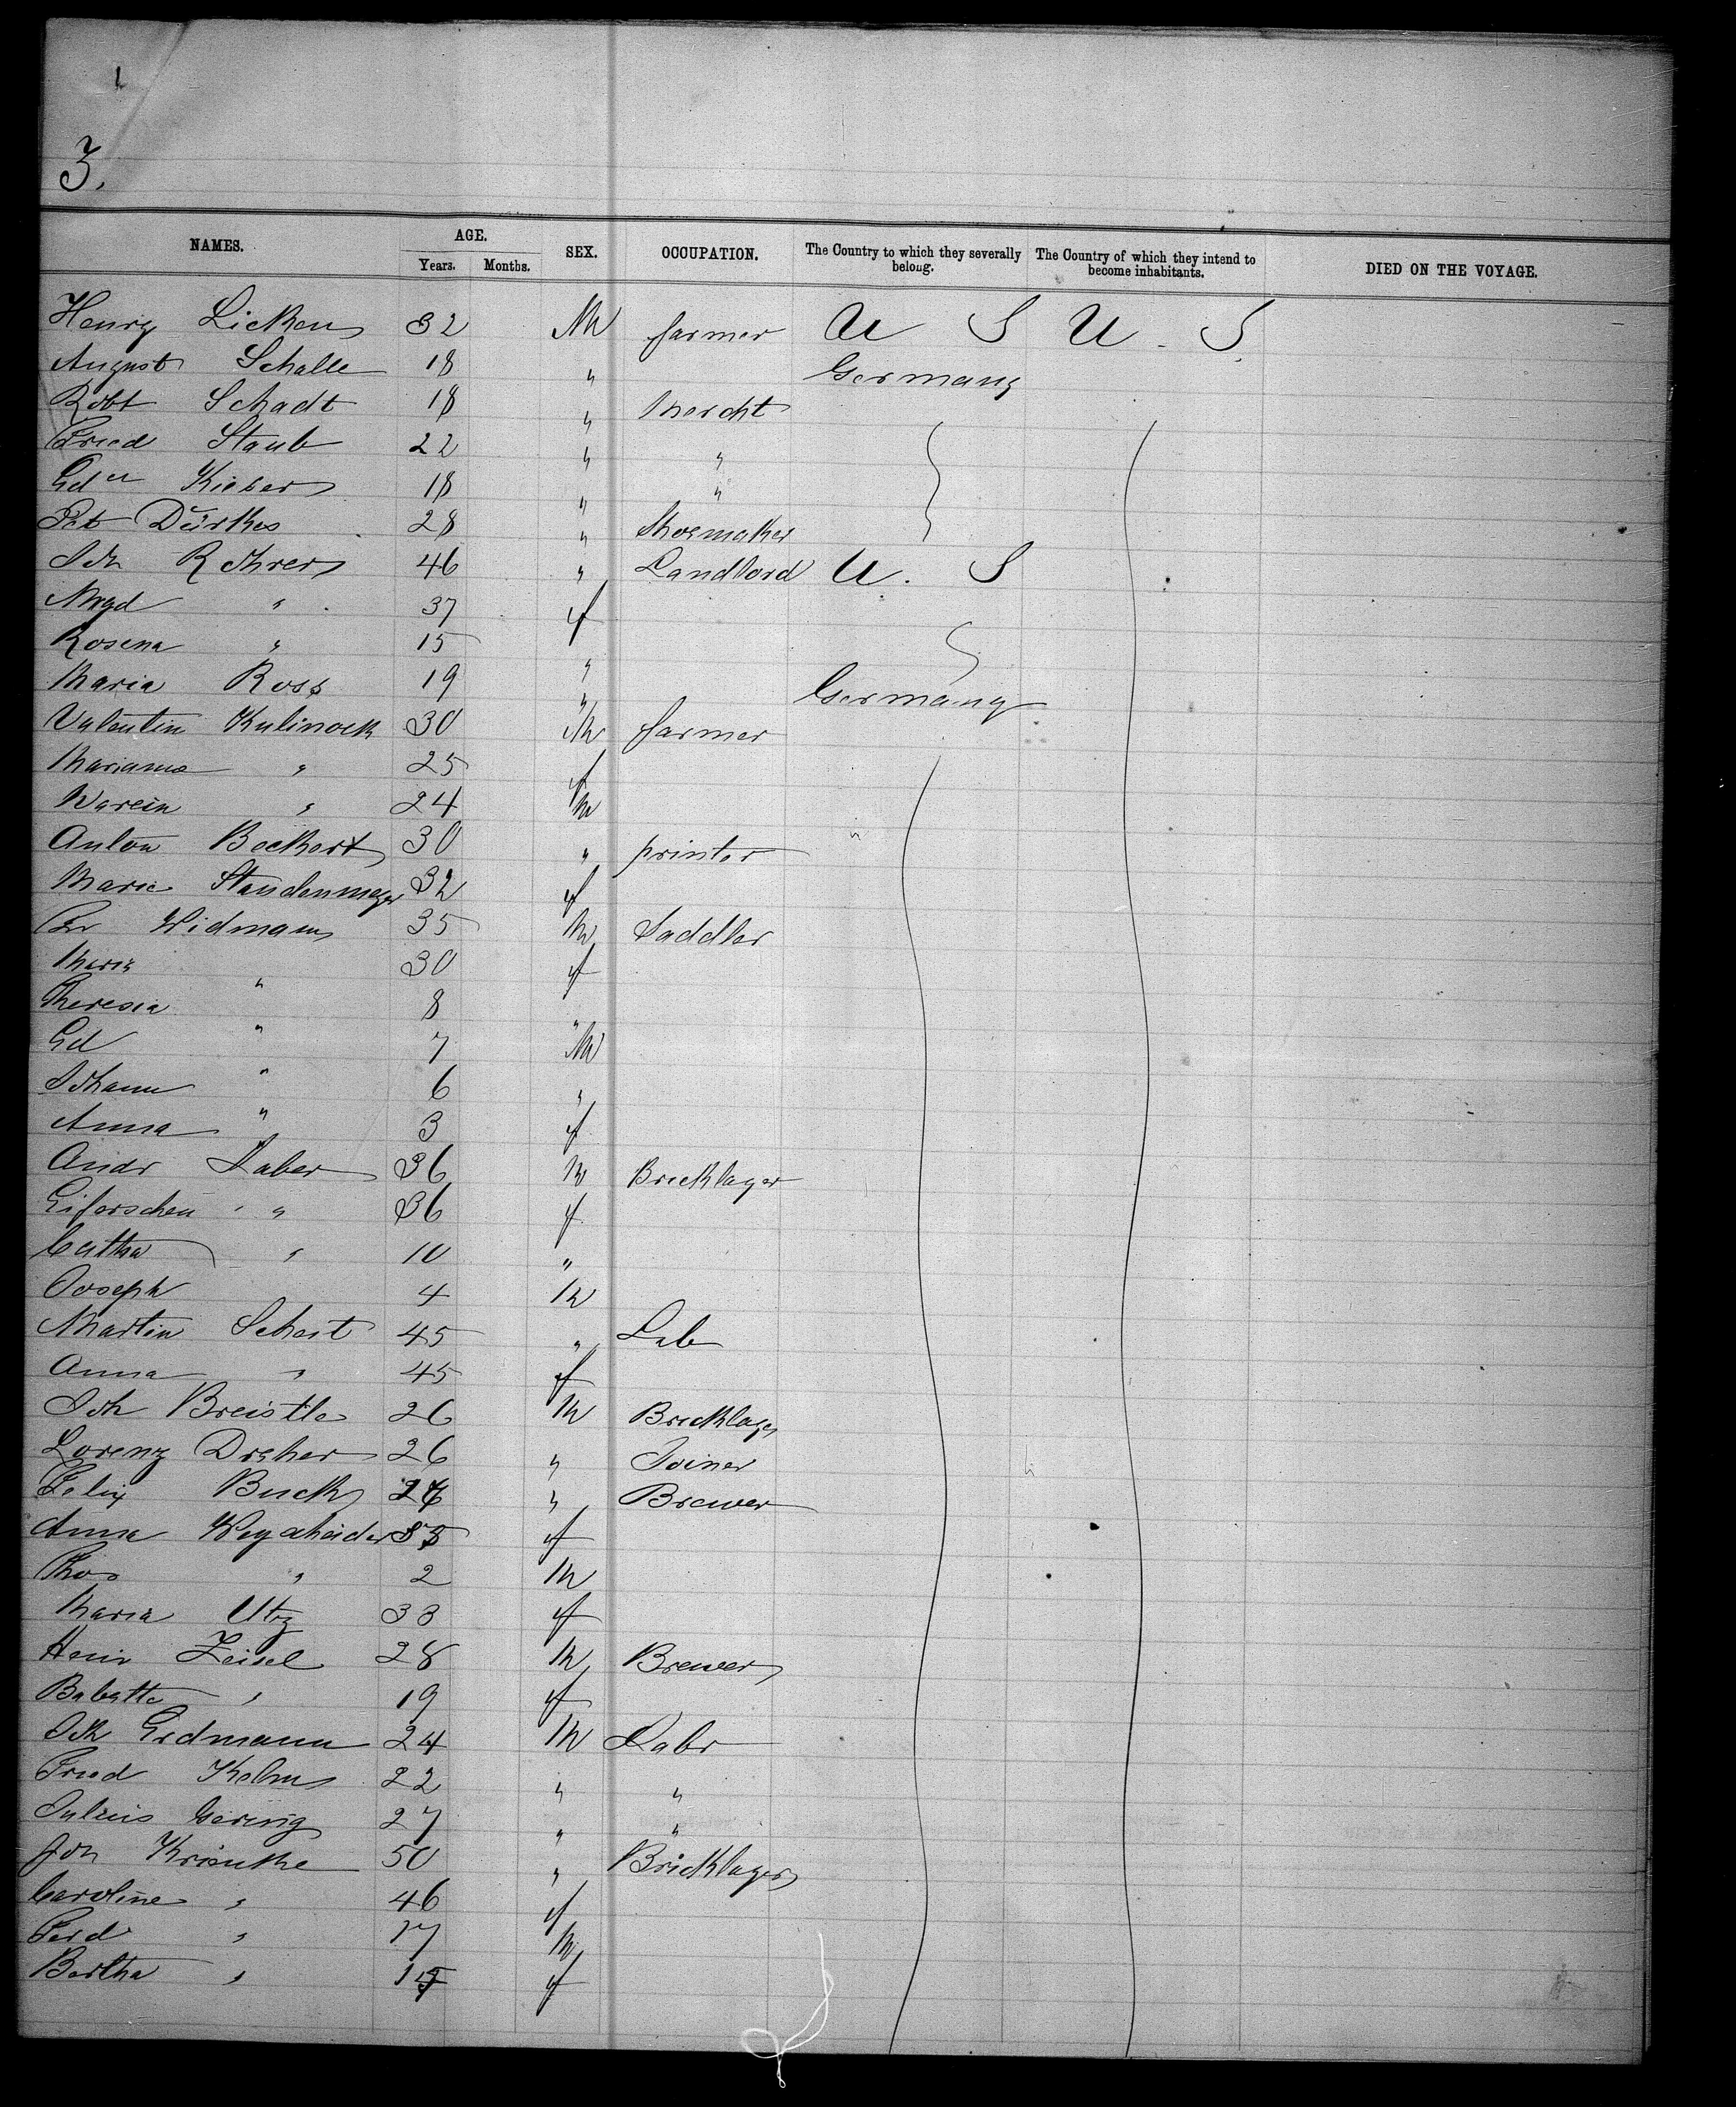 3.
NAMES. AGE. Years. Months. SEX. OCCUPATION. The Country to which they severally belong. The Country of which they intend to become inhabitants. DIED ON THE VOYAGE.
Henry 32 M farmer U S U. S.
August Schalle 18 " Germany
Robt Schadt 18 " Mercht
Fried Staub 22 " "
18 " "
Pet Dürkes 28 " Shoemaker
Joh Rohrer 46 " Landlord U. S
Mgd " 37 f
Rosena " 15 "
Maria Ross 19 " Germany
Valentin 30 M farmer
" 25 f
" 24 M
Anton Beckert 30 " printer
Marie Staudenmayer 32 f
Fr Widmann 35 M Saddler
Maria " 30 f
Theresia " 8 "
Ed " 7 M
Johann " 6 "
Anna " 3 f
Andr 36 M Bricklayer
" 36 f
Catha " 10 "
Joseph 4 M
Martin 45 " Lab
Anna " 45 f
Joh Breistle 26 M Bricklayer
Lorenz Dreher 26 " Joiner
Felix Buck " Brewer
Anna f
" 2 M
Maria Utz 33 f
Heinr Zeisel 28 M Brewer
Babette " 19 f
Joh Erdmann 24 M Labr
Fried Kelm 22 " "
Julius Gering 27 " "
Joh 50 " Bricklayer
Caroline " 46 f
Ferd " 17 M
Bertha " f